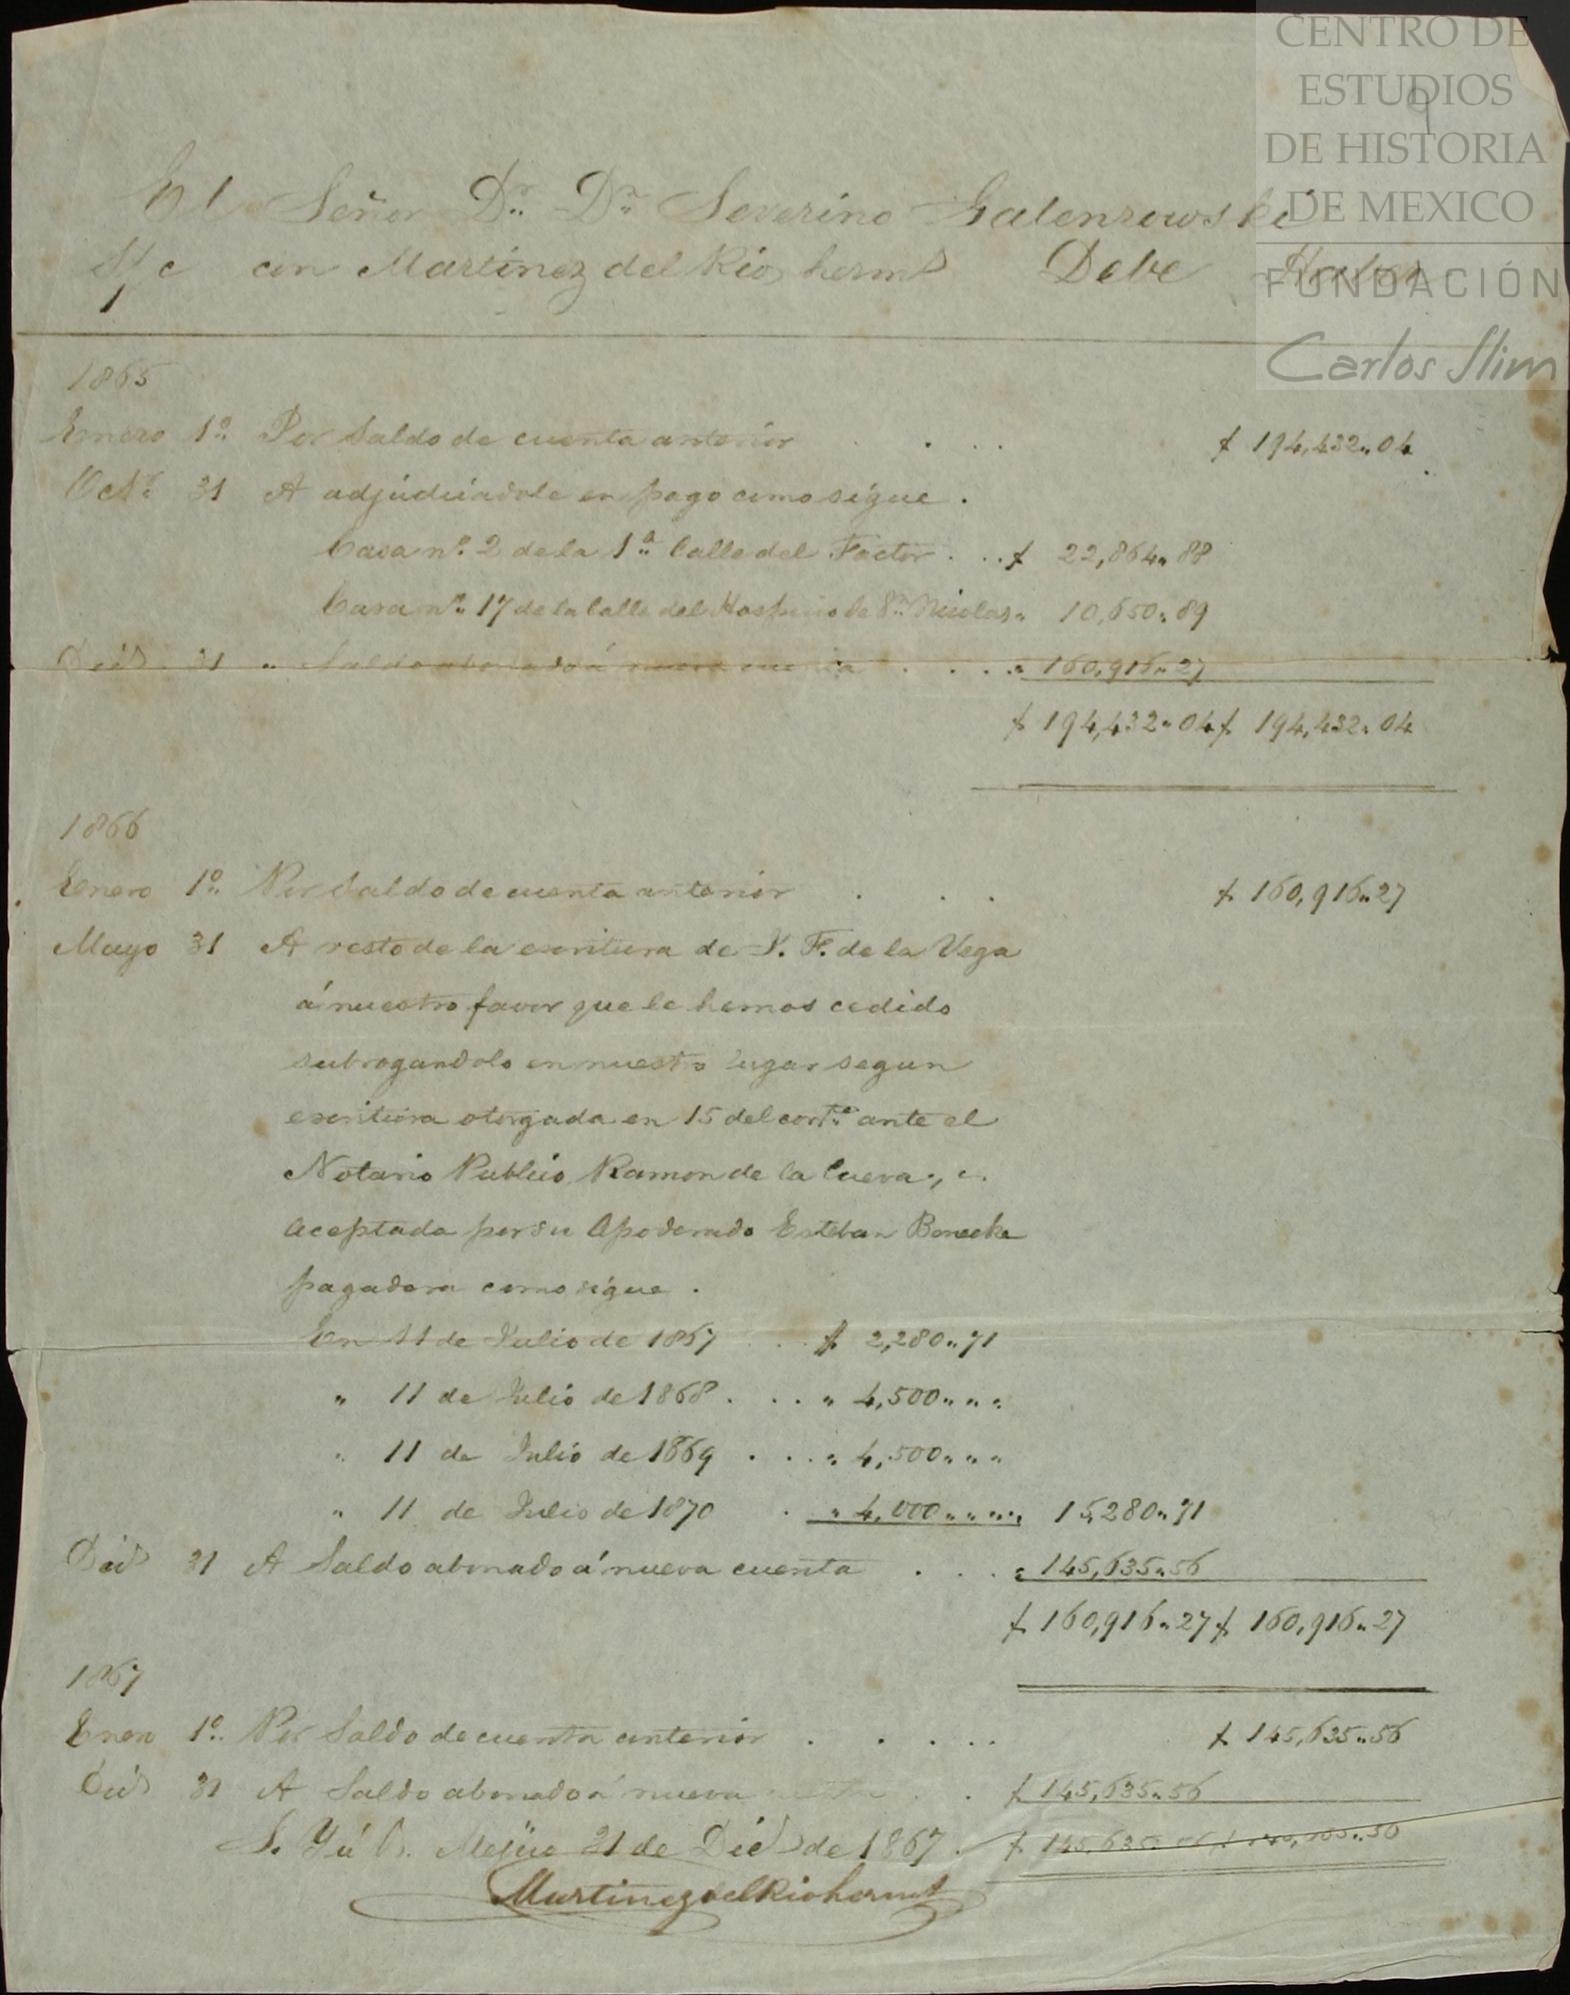 CENTRO DE
ESTUDIOS
DE HISTORIA
DE MEXICO
FUNDACIÓN
Carlos Slim
9
El Señor Dn. Dr. Severino Galenzowski
S/c con Martinez del Rio herms Debe Haber
1865
Enero 1º Por Saldo de cuenta anterior . . . $ 194,432"04
Octe 31 A adjudicadole en pago como sigue.
Casa nº 2 de la 1ª Calle del Factor . . . $ 22,864"88
Casa nº 17 de la Calle del Hospicio de Sn Nicolas " 10,650"89
Dicb 31 " Saldo abonado á nueva cuenta . . . " 160,916"27
$ 194,432"04 $ 194,432"04
1866
Enero 1º Por Saldo de cuenta anterior . . . $ 160,916"27
Mayo 31 A resto de la escritura de Y. F. de la Vega
á nuestro favor que le hemos cedido
subrogandolo en nuestro lugar segun
escritura otorgada en 15 del corte ante el
Notario Publico Ramon de la Cueva,
aceptada por su Apoderado Esteban Benecke
pagadera como sigue.
En 11 de Julio de 1867 . . . $ 2,280"71
" 11 de Julio de 1868 . . . " 4,500" " "
" 11 de Julio de 1869 . . . " 4,500" " "
" 11 de Julio de 1870 . " 4,000" " " 15,280"71
Dicb 31 A Saldo abonado á nueva cuenta . . . " 145,635"56
$ 160,916"27 $ 160,916"27
1867
Enero 1º Por Saldo de cuenta anterior . . . . $ 145,635"56
Dicb 31 A Saldo abonado á nueva cuenta . . $ 145,635"56
S. Yú O. Mejico 31 de Dicb de 1867. $ 145,635"56 $ 145,635"56
Martinez del Rio herms